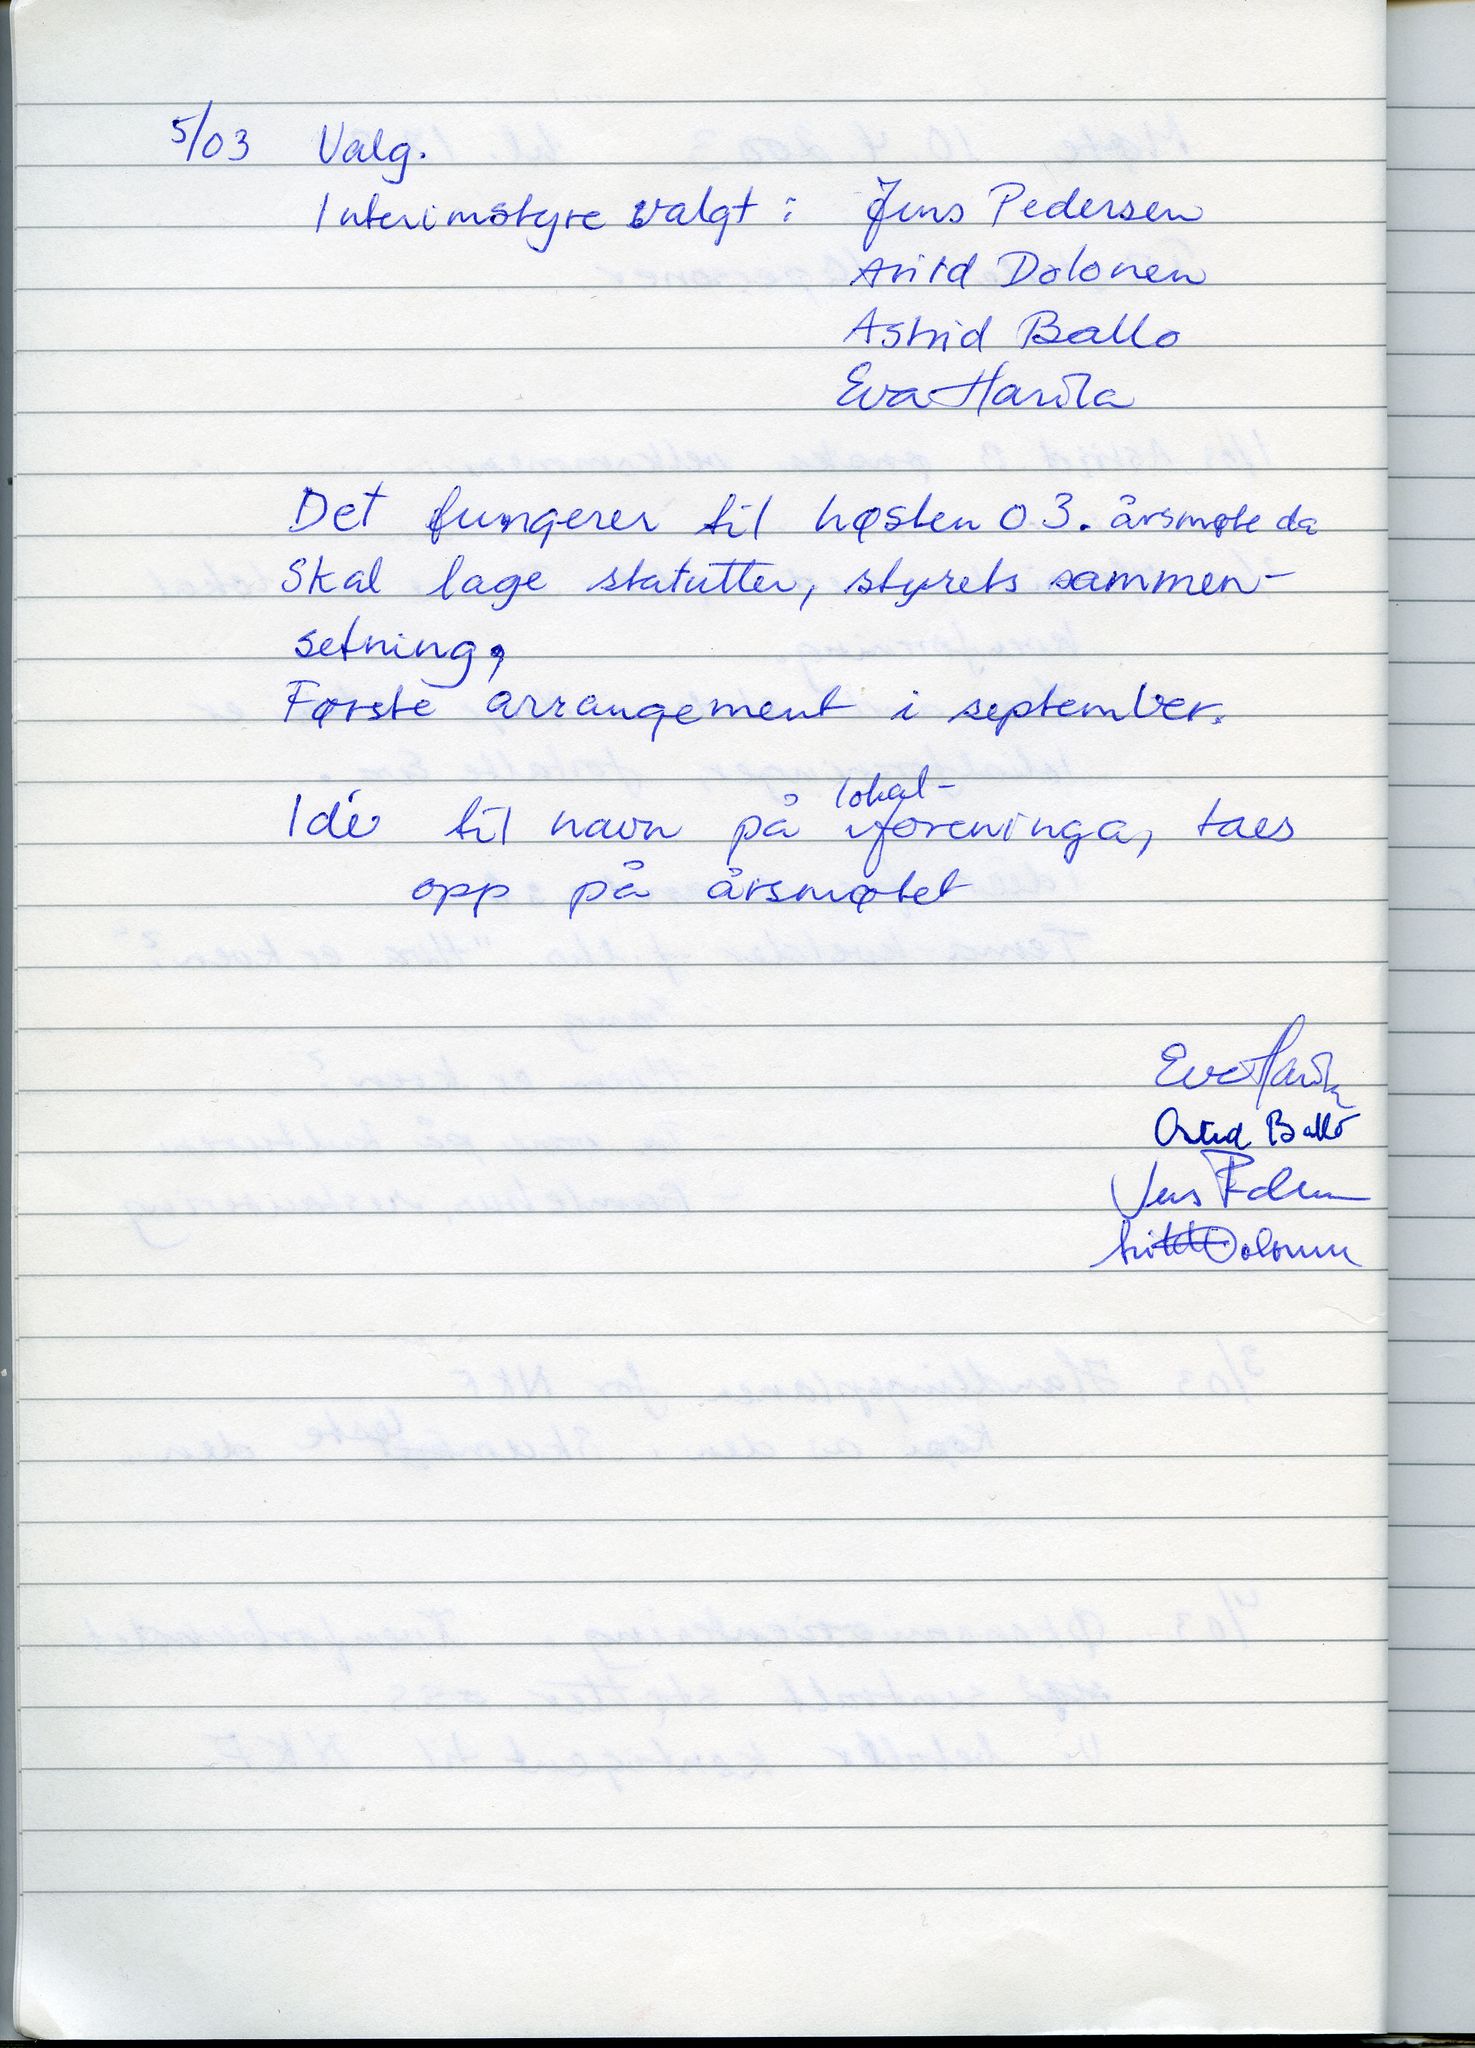 5/03 Valg.
Interimstyre valgt : Jens Pedersen
Arild Dolonen
Astrid Ballo
Eva Harila
Det fungerer til høsten 03. årsmøte da
Skal lage statutter, styrets sammen-
setning,
Første arrangement i september.
Idé til navn på lokal-foreninga, taes
opp på årsmøtet
Eva Harila
Astrid Ballo
Jens Pedersen
Dolonen